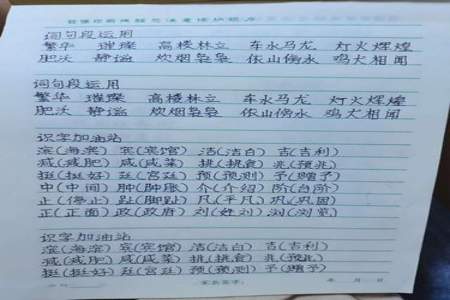 词句段运用
繁华 璀璨 高楼林立 车水马龙 灯火辉煌
肥沃 静谧 炊烟袅袅 依山傍水 鸡犬相闻
词句段运用
繁华 璀璨 高楼林立 车水马龙 灯火辉煌
肥沃 静谧 炊烟袅袅 依山傍水 鸡犬相闻
识字加油站
滨(海滨) 宾(宾馆) 洁(洁白) 吉(吉利)
减(减肥) 咸(咸菜) 挑(挑食) 兆(预兆)
挺(挺好) 廷(宫廷) 预(预测) 予(赠予)
中(中间) 肿(肿胀) 介(介绍) 阶(台阶)
止(停止) 趾(脚趾) 凡(平凡) 巩(巩固)
正(正面) 政(政府) 刘(姓刘) 浏(浏览)
识字加油站
滨(海滨) 宾(宾馆) 洁(洁白) 吉(吉利)
减(减肥) 咸(咸菜) 挑(挑食) 兆(预兆)
挺(挺好) 廷(宫廷) 预(预测) 予(赠予)
年 月 日